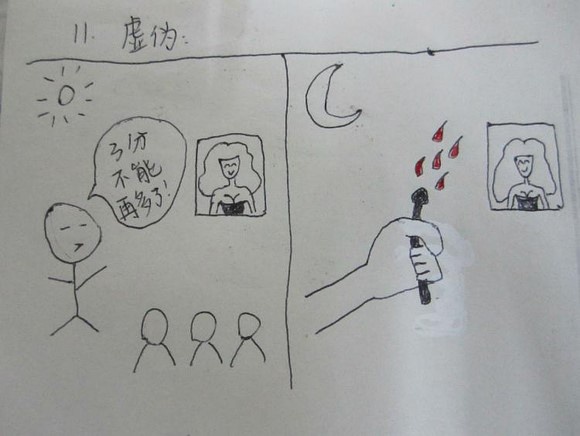 11. 虚伪:
3分
不能
再多了!